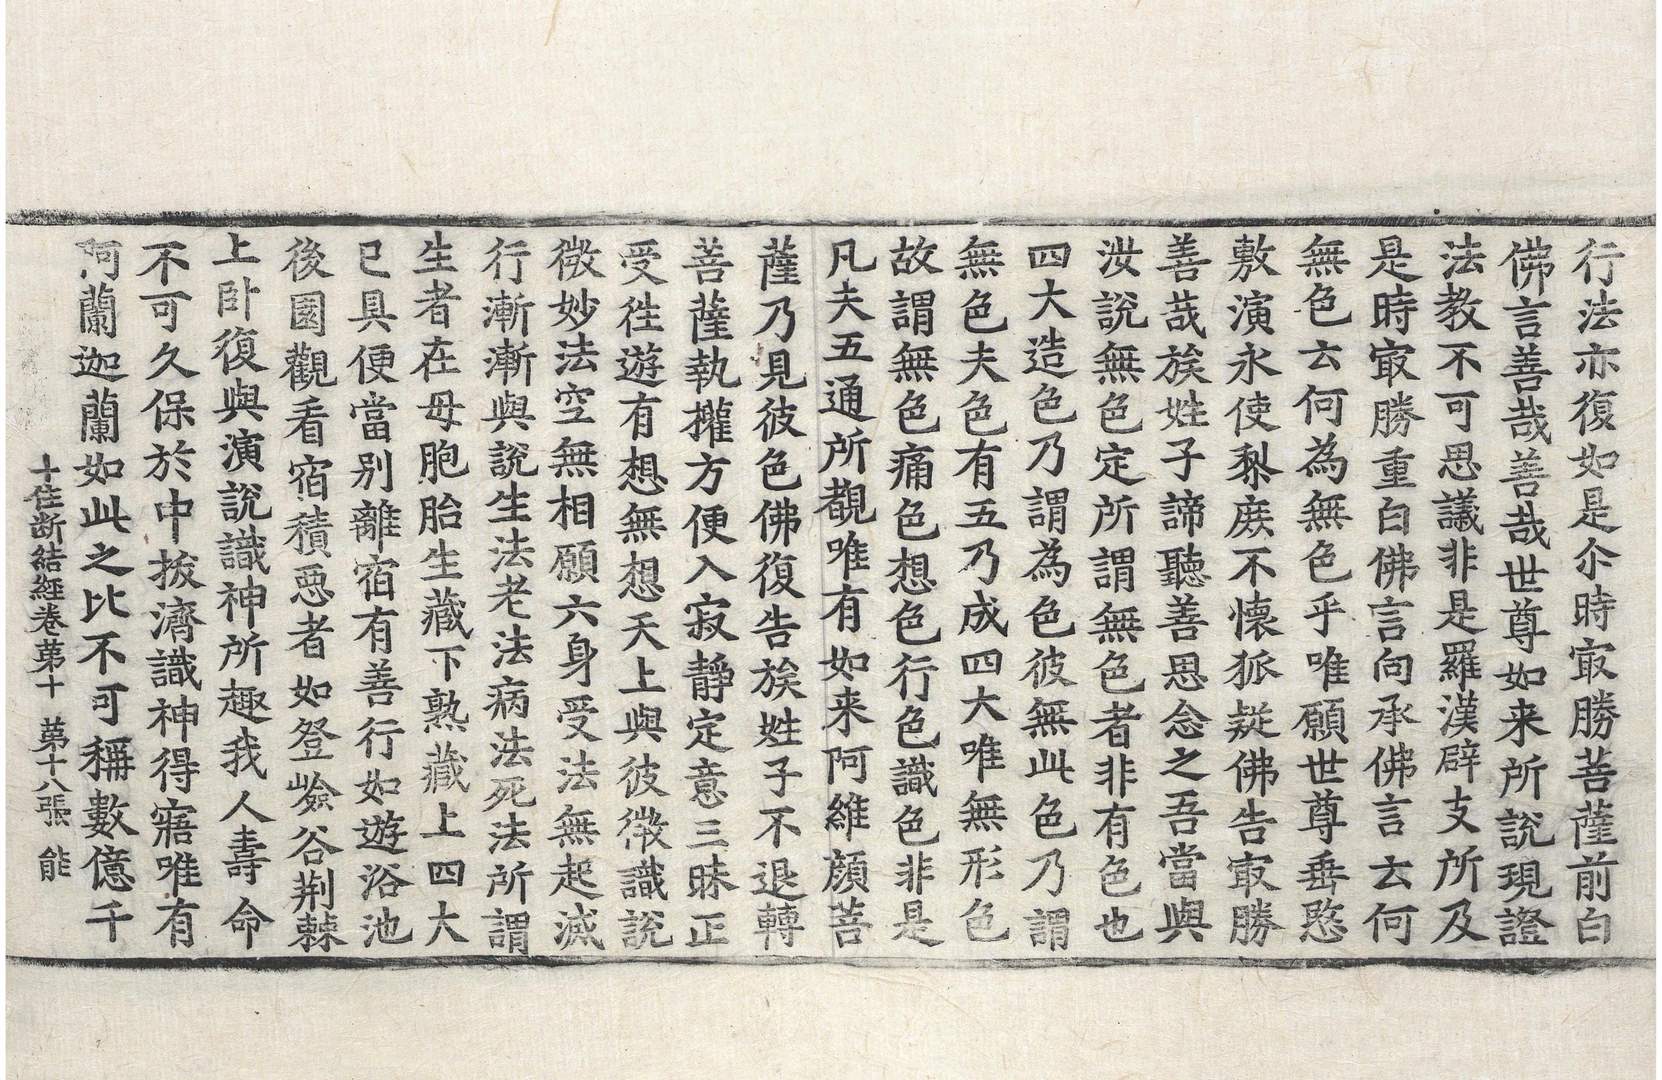 行法亦復如是尒時㝡勝菩薩前白
佛言善哉善哉世尊如来所說現證
法教不可思議非是羅漢辟支所及
是時㝡勝重白佛言向承佛言云何
無色云何為無色乎唯願世尊垂愍
敷演永使梨庻不懷狐疑佛告㝡勝
善哉族姓子諦聽善思念之吾當與
汝說無色定所謂無色者非有色也
四大造色乃謂為色彼無此色乃謂
無色夫色有五乃成四大唯無形色
故謂無色痛色想色行色識色非是
凡夫五通所觀唯有如来阿維顔菩
薩乃見彼色佛復告族姓子不退轉
菩薩執權方便入寂靜定意三昧正
受徃遊有想無想天上與彼微識說
微妙法空無相願六身受法無起滅
行漸漸與說生法老法病法死法所謂
生者在母胞胎生藏下熟藏上四大
已具便當别離宿有善行如遊浴池
後園觀看宿積惡者如登嶮谷荆棘
上卧復與演說識神所趣我人壽命
不可久保於中拔濟識神得寤唯有
阿蘭迦蘭如此之比不可稱數億千
十住断結經卷第十　第十八張　能